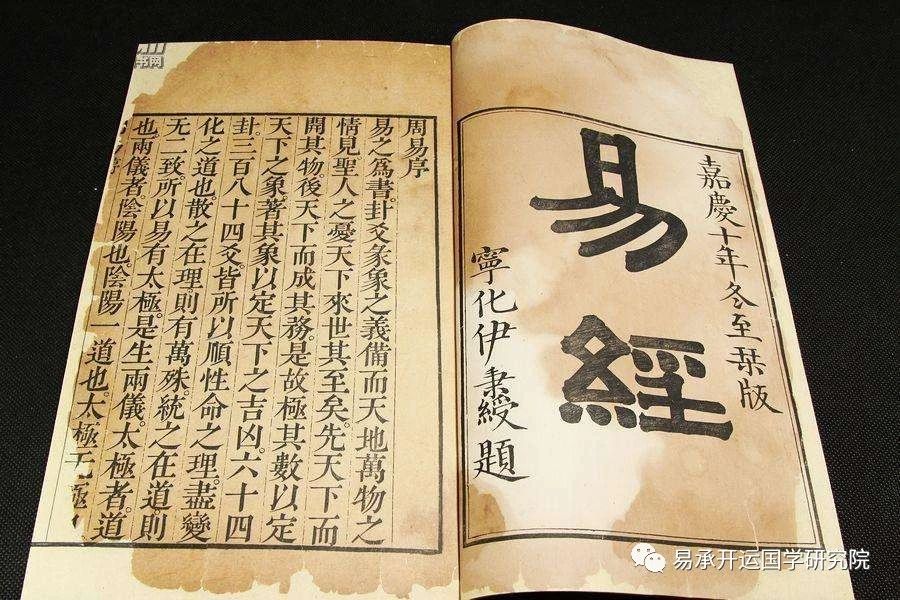 嘉慶十年冬至栞版
易經
寧化伊秉綬題
周易序
易之爲書。卦爻彖象之義備而天地萬物之
情見聖人之憂天下來世其至矣。先天下而
開其物。後天下而成其務。是故極其數以定
天下之象。著其象以定天下之吉凶。六十四
卦。三百八十四爻。皆所以順性命之理。盡變
化之道也。散之在理。則有萬殊。統之在道。則
无二致。所以易有太極。是生兩儀。太極者。道
也。兩儀者。陰陽也。陰陽一道也。太極无極
书网
易承开运国学研究院